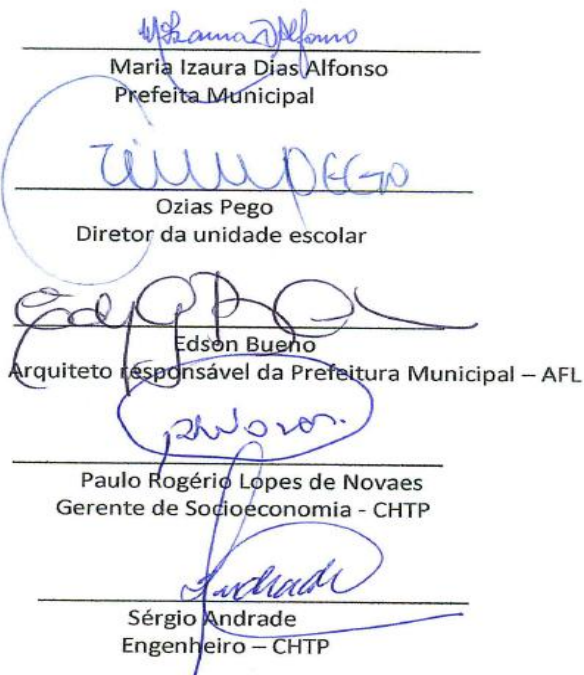 Maria Izaura Dias Alfonso
Prefeita Municipal
PEGO
Ozias Pego
Diretor da unidade escolar
Edson Bueno
Arquiteto responsável da Prefeitura Municipal – AFL
Paulo Rogério Lopes de Novaes
Gerente de Socioeconomia - CHTP
Andrade
Sérgio Andrade
Engenheiro – CHTP